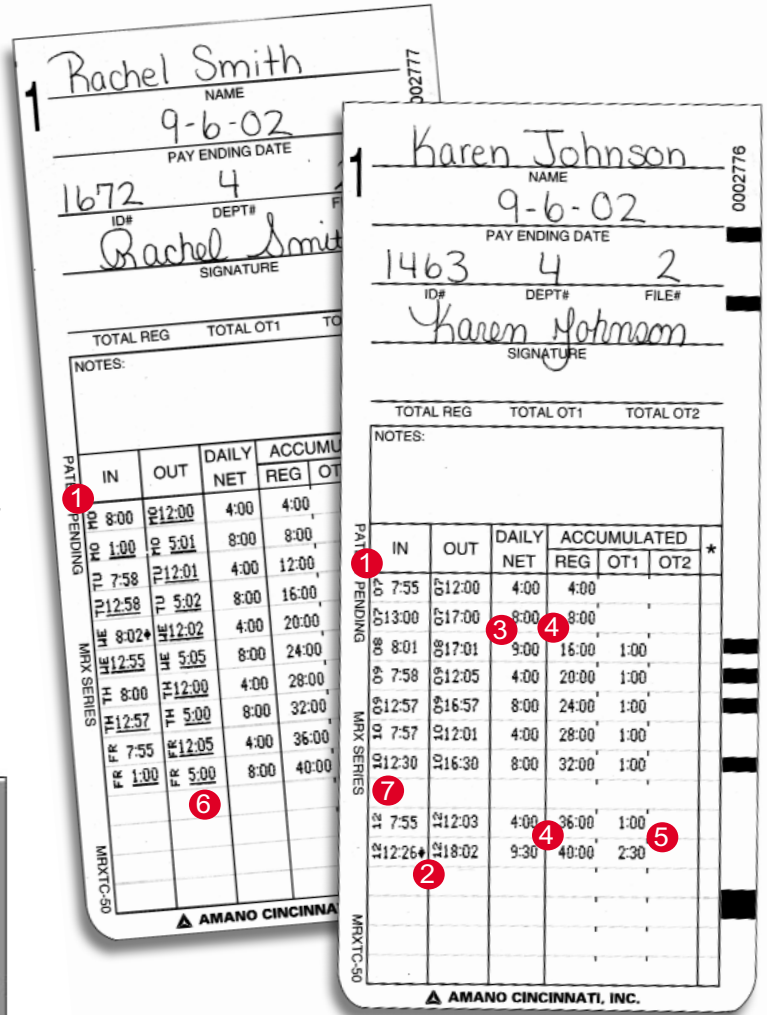 1
Rachel Smith
NAME
9-6-02
PAY ENDING DATE
1672 4
ID# DEPT#
Rachel Smit
SIGNATURE
TOTAL REG TOTAL OT1 TO
NOTES:
IN OUT DAILY NET ACCUMU
REG OT
1
MO 8:00 MO12:00 4:00 4:00
MO 1:00 MO 5:01 8:00 8:00
TU 7:58 TU12:01 4:00 12:00
TU12:58 TU 5:02 8:00 16:00
WE 8:02♦ WE12:02 4:00 20:00
WE12:55 WE 5:05 8:00 24:00
TH 8:00 TH12:00 4:00 28:00
TH12:57 TH 5:00 8:00 32:00
FR 7:55 FR12:05 4:00 36:00
FR 1:00 FR 5:00 8:00 40:00
6
PENDING
MRX SERIES
MRXTC-50
AMANO CINCINNA
02777
1
Karen Johnson
NAME
9-6-02
PAY ENDING DATE
1463 4 2
ID# DEPT# FILE#
Karen Johnson
SIGNATURE
TOTAL REG TOTAL OT1 TOTAL OT2
NOTES:
IN OUT DAILY NET ACCUMULATED *
REG OT1 OT2
1
07 7:55 0712:00 4:00 4:00
0713:00 0717:00 8:00 8:00
3 4
08 8:01 0817:01 9:00 16:00 1:00
09 7:58 0912:05 4:00 20:00 1:00
0912:57 0916:57 8:00 24:00 1:00
10 7:57 1012:01 4:00 28:00 1:00
1012:30 1016:30 8:00 32:00 1:00
7
12 7:55 1212:03 4:00 36:00 1:00
4 5
1212:26♦ 1218:02 9:30 40:00 2:30
2
PENDING
MRX SERIES
MRXTC-50
AMANO CINCINNATI, INC.
0002776